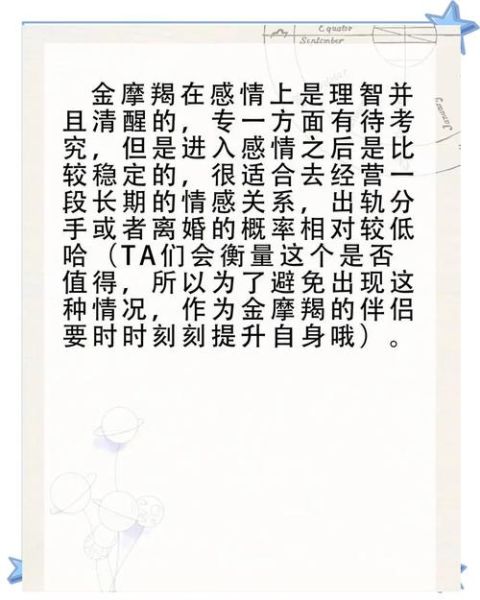 Equator
September
January
金摩羯在感情上是理智并
且清醒的，专一方面有待考
究，但是进入感情之后是比
较稳定的，很适合去经营一
段长期的情感关系，出轨分
手或者离婚的概率相对较低
哈（TA们会衡量这个是否
值得，所以为了避免出现这
种情况，作为金摩羯的伴侣
要时时刻刻提升自身哦）。